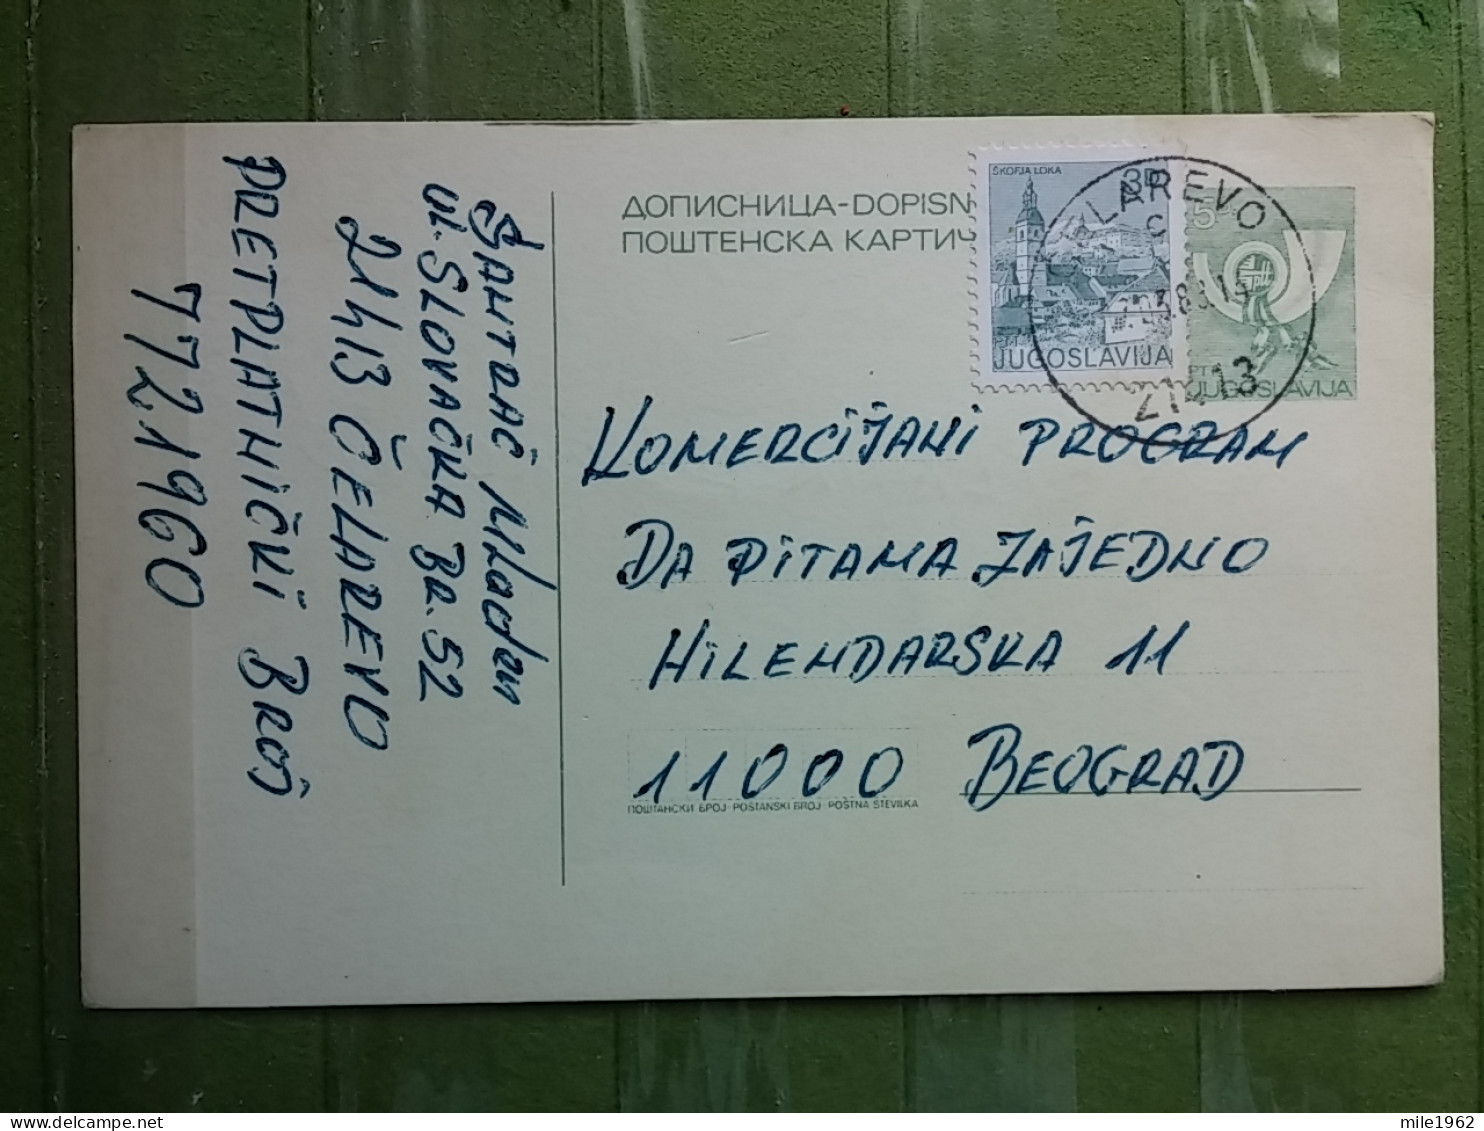 Šantrač Mladen
ul. SLOVAČKA BR. 52
21413 ČELAREVO
PRETPLATNIČKI BROJ
7721960
ДОПИСНИЦА-DOPISN
ПОШТЕНСКА КАРТИЧ
ŠKOFJA LOKA
JUGOSLAVIJA
ČELAREVO
21413
JUGOSLAVIJA
KOMERCIJANI PROGRAM
DA PITAMA ZAJEDNO
HILENDARSKA 11
11000 BEOGRAD
ПОШТАНСКИ БРОЈ-POŠTANSKI BROJ-POŠTNA ŠTEVILKA
mile1962